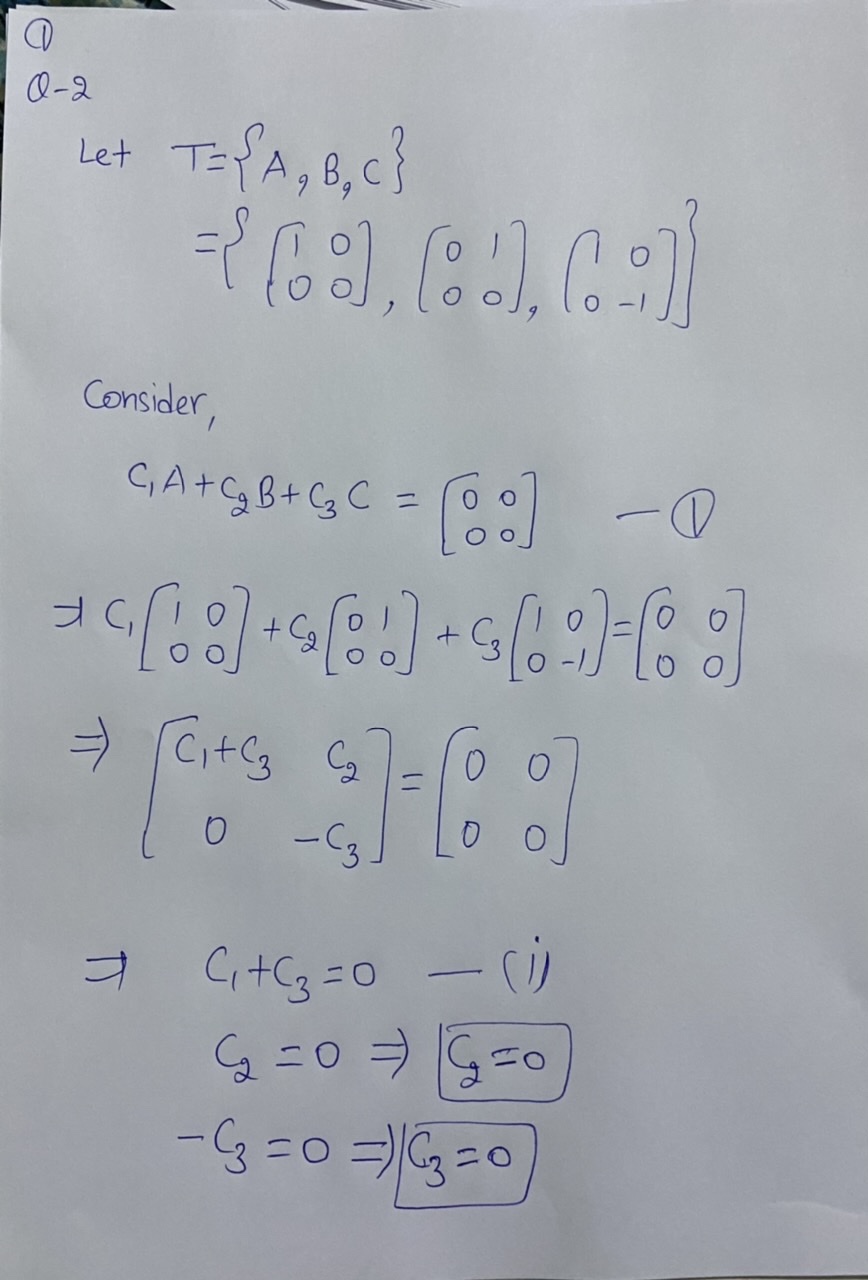 ①
Q-2
Let T={A, B, C}
={[1 0
0 0], [0 1
0 0], [1 0
0 -1]}
Consider,
C₁A+C₂B+C₃C = [0 0
0 0] —①
⇒ C₁[1 0
0 0]+C₂[0 1
0 0]+C₃[1 0
0 -1]=[0 0
0 0]
⇒ [C₁+C₃ C₂
0 -C₃]=[0 0
0 0]
⇒ C₁+C₃=0 —(i)
C₂=0 ⇒ C₂=0
-C₃=0 ⇒ C₃=0